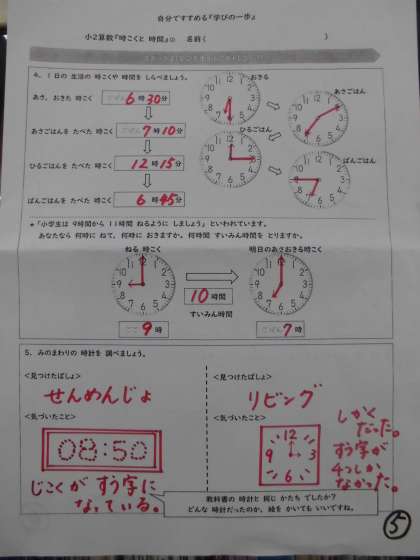 自分ですすめる『学びの一歩』
小2算数『時こくと 時間』① 名前( )
4. 1日の 生活の 時こくや 時間を しらべましょう。
おきる
あさ、おきた 時こく 6時30分
あさごはん
あさごはんを たべた 時こく 7時10分
ひるごはん
ひるごはんを たべた 時こく 12時15分
ばんごはん
ばんごはんを たべた 時こく 6時45分
★「小学生は 9時間から 11時間 ねるように しましょう」といわれています。
あなたなら 何時に ねて、何時に おきますか。何時間 すいみん時間を とりますか。
ねる 時こく
明日のあさおきる時こく
10時間
すいみん時間
9時
7時
5. みのまわりの 時計を 調べましょう。
<見つけたばしょ>
せんめんじょ
<気づいたこと>
08:50
じこくが すう字に
なっている。
<見つけたばしょ>
リビング
<気づいたこと>
しかく
だった。
すう字が
4つしか
なかった。
12
9 3
6
教科書の 時計と 同じ かたち でしたか?
どんな 時計だったのか、絵を かいても いいですね。
⑤